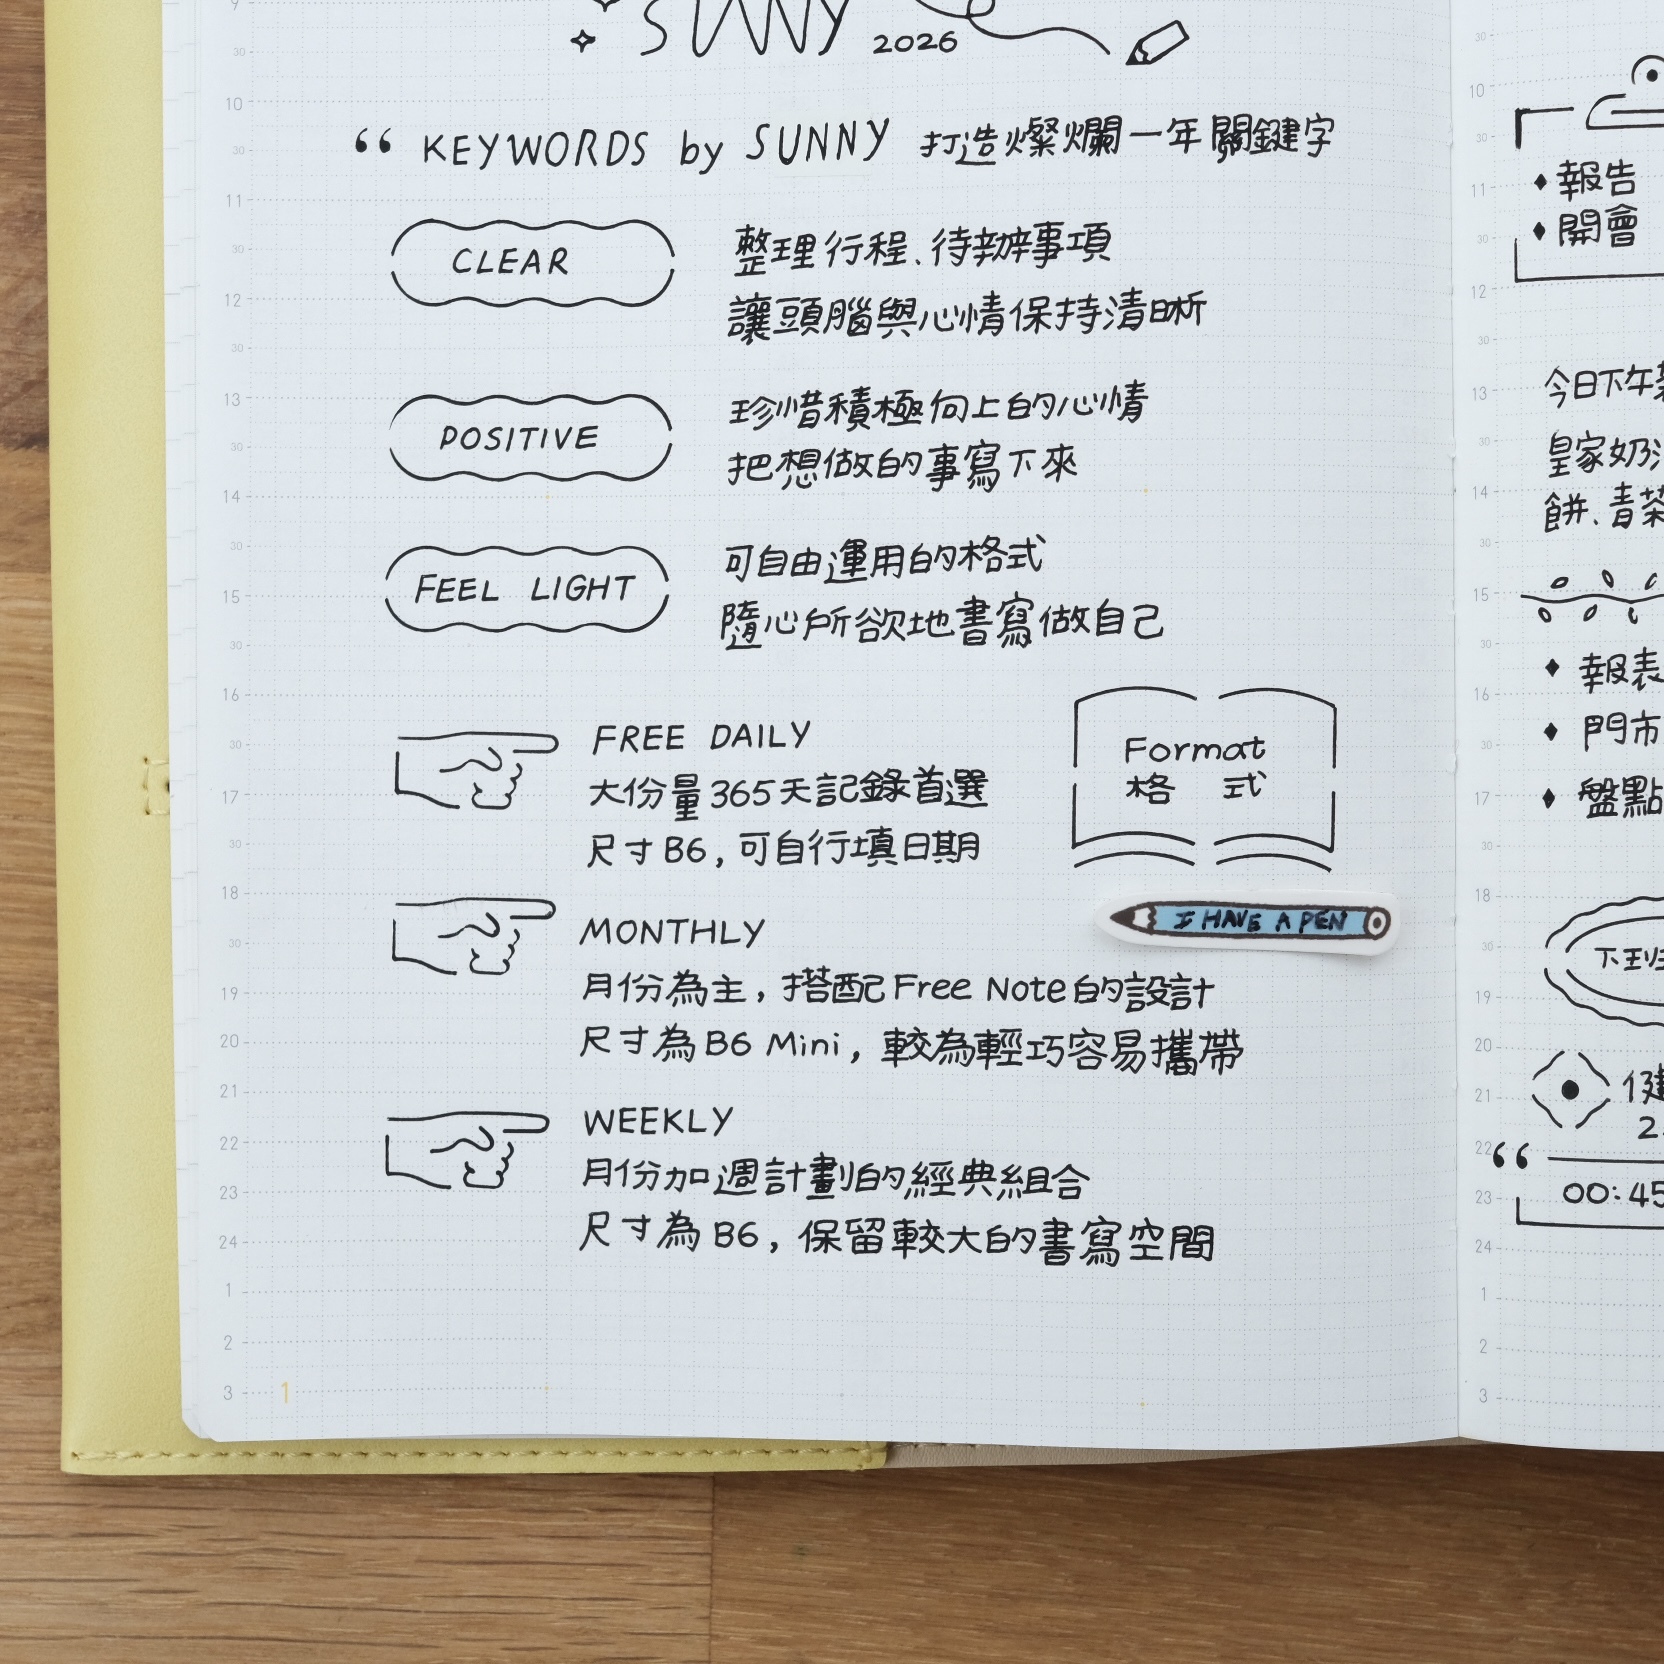 SUNNY 2026
KEYWORDS by SUNNY 打造燦爛一年關鍵字
CLEAR
整理行程、待辦事項
讓頭腦與心情保持清晰
POSITIVE
珍惜積極向上的心情
把想做的事寫下來
FEEL LIGHT
可自由運用的格式
隨心所欲地書寫做自己
Format
格 式
FREE DAILY
大份量365天記錄首選
尺寸B6,可自行填日期
I HAVE A PEN
MONTHLY
月份為主,搭配Free Note的設計
尺寸為B6 Mini,較為輕巧容易攜帶
WEEKLY
月份加週計劃的經典組合
尺寸為B6,保留較大的書寫空間
9
30
10
30
11
30
12
30
13
30
14
30
15
30
16
30
17
30
18
30
19
20
21
22
23
24
1
2
3
1
報告
開會
今日下午
皇家奶
餅、青菜
報表
門市
盤點
健
2
00:45
30
10
30
11
30
12
30
13
30
14
30
15
30
16
30
17
30
18
30
19
20
21
22
23
24
1
2
3